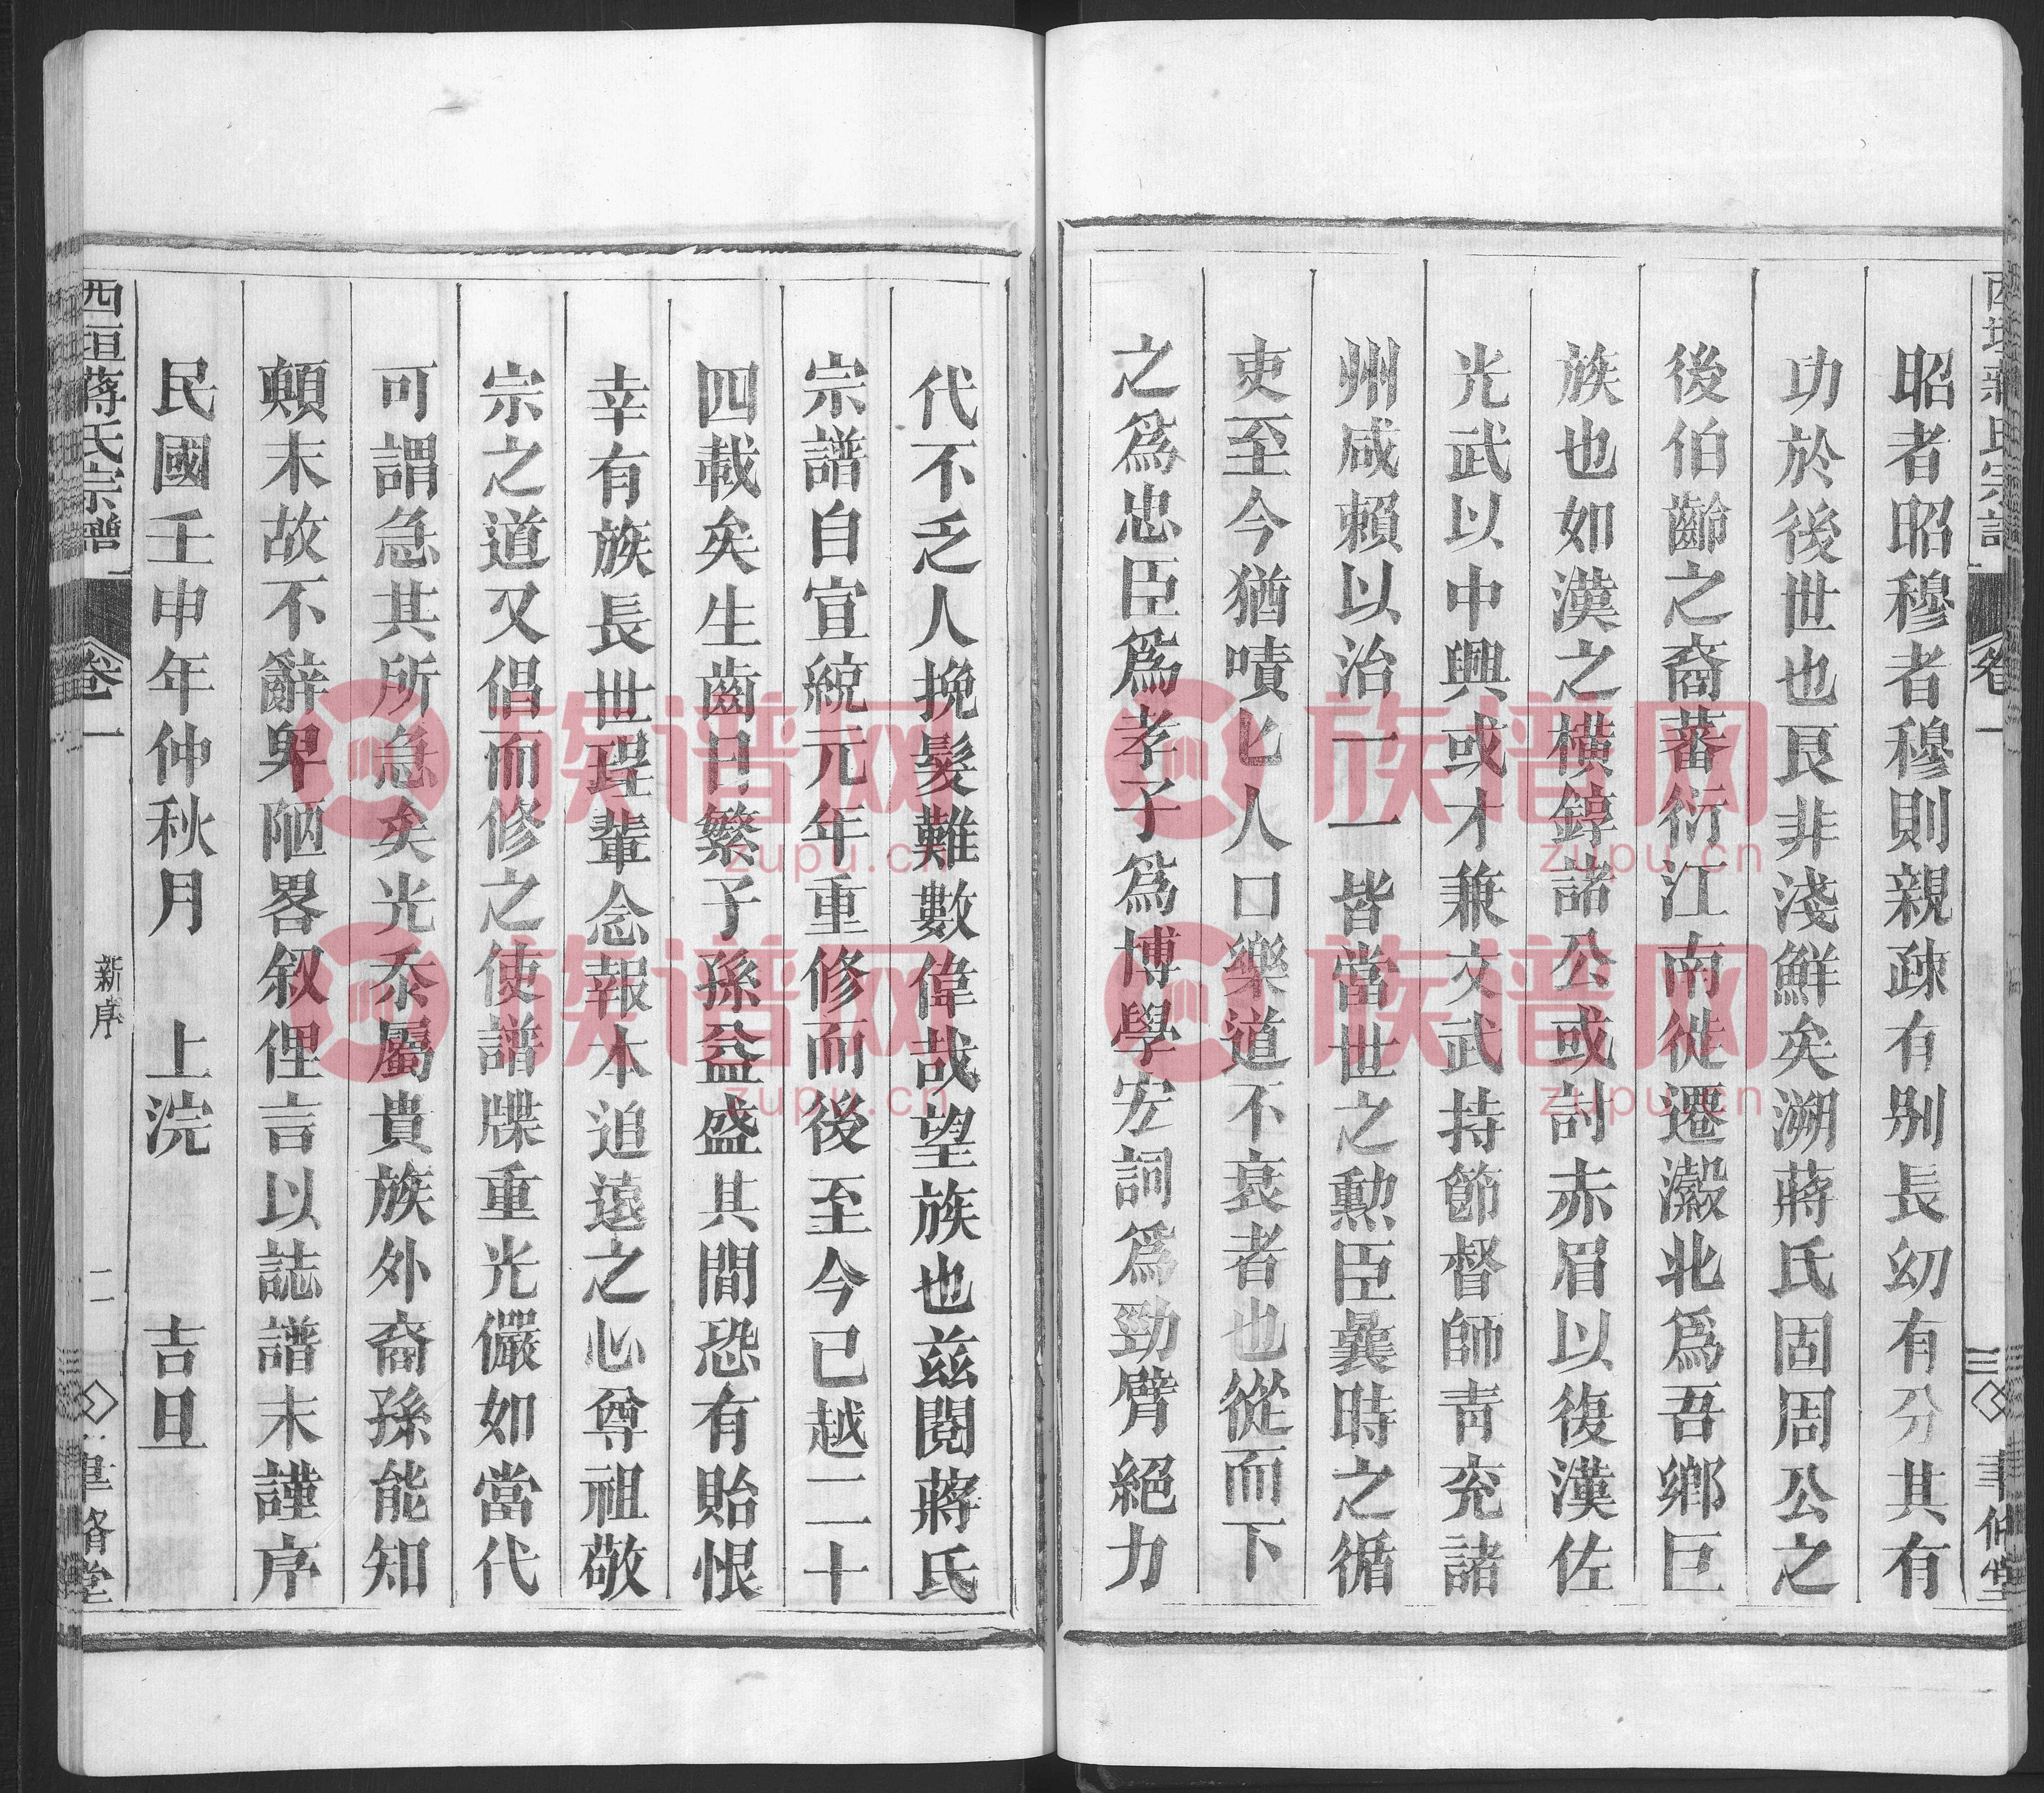 昭者昭穆者穆則親疎有别長幼有分其有
功於後世也艮非淺鮮矣溯蔣氏固周公之
後伯齡之裔蕃衍江南徙遷瀫北爲吾鄉巨
族也如漢之橫錞諸公或討赤眉以復漢佐
光武以中興或才兼文武持節督師靑兖諸
州咸賴以治一一皆當世之勲臣曩時之循
吏至今猶嘖匕人口樂道不衰者也從而下
之爲忠臣爲孝子爲博學宏詞爲勁臂絕力
代不乏人挽髮難數偉哉望族也茲閱蔣氏
宗譜自宣統元年重修而後至今已越二十
四載矣生齒日繁子孫益盛其間恐有貽恨
幸有族長世瑆輩念報本追遠之心尊祖敬
宗之道又倡而修之使譜牒重光儼如當代
可謂急其所急矣光忝屬貴族外裔孫能知
顛末故不辭卑陋畧叙俚言以誌譜末謹序
民國壬申年仲秋月 上浣 吉旦
西垣蔣氏宗譜 卷一 新序 二
卷一 三
族谱网
zupu.cn
族谱网
zupu.cn
族谱网
zupu.cn
族谱网
zupu.cn